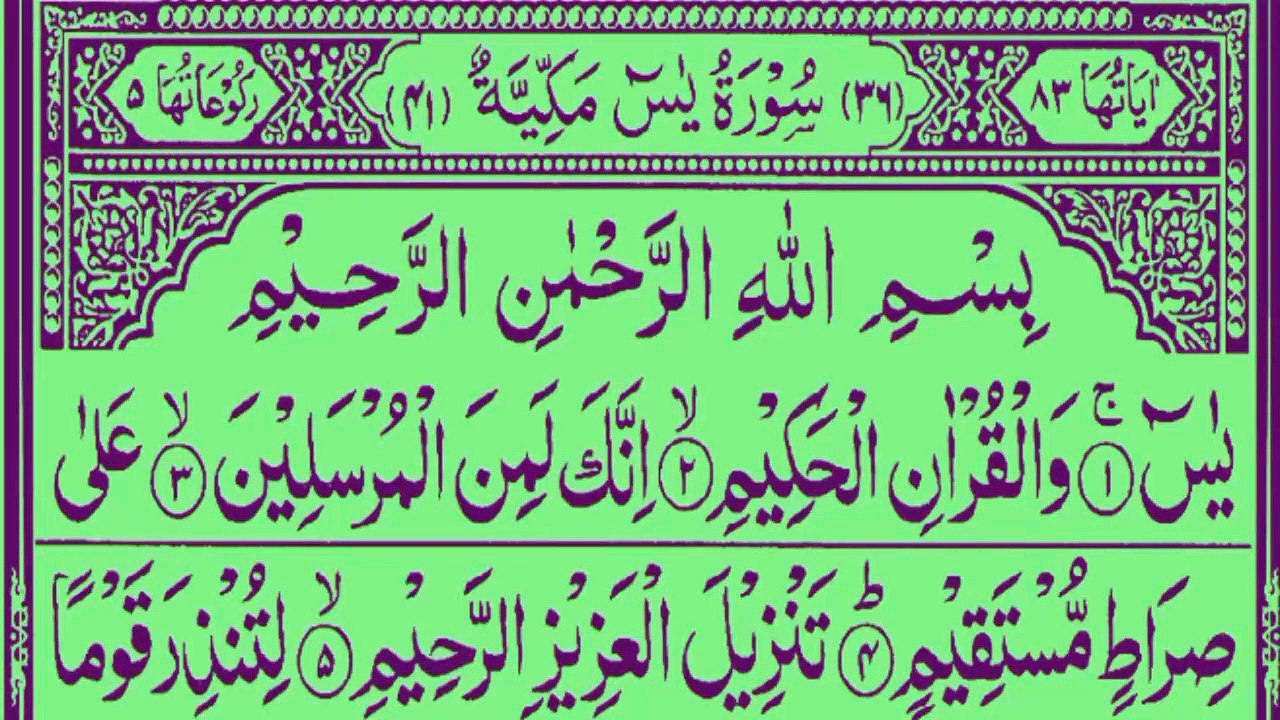 اٰيَاتُهَا ٨٣ (٣٦) سُوْرَةُ يٰسٓ مَكِّيَّةٌ (٤١) رَكُوْعَاتُهَا ٥
بِسْمِ اللّٰهِ الرَّحْمٰنِ الرَّحِيْمِ
يٰسٓ ۚ ﴿١﴾ وَالْقُرْاٰنِ الْحَكِيْمِ ۙ ﴿٢﴾ اِنَّكَ لَمِنَ الْمُرْسَلِيْنَ ۙ ﴿٣﴾ عَلٰى
صِرَاطٍ مُّسْتَقِيْمٍ ؕ ﴿۴﴾ تَنْزِيْلَ الْعَزِيْزِ الرَّحِيْمِ ۙ ﴿۵﴾ لِتُنْذِرَ قَوْمًا